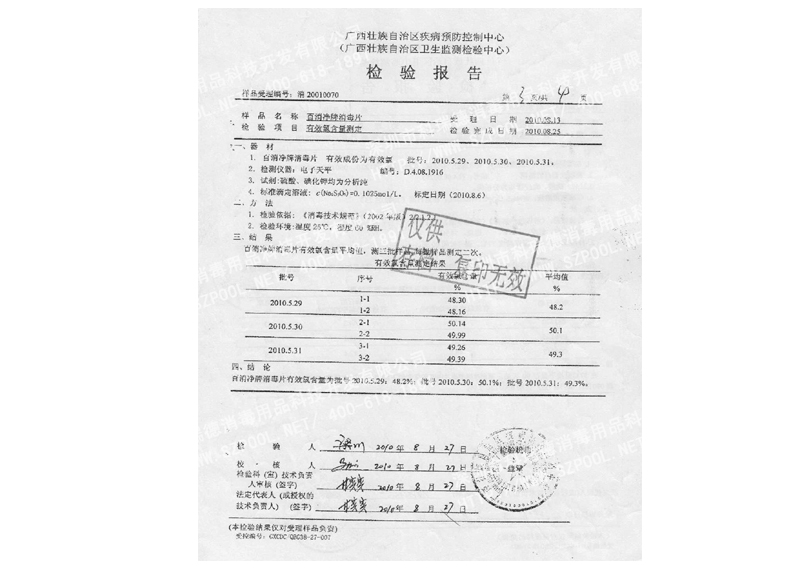 广西壮族自治区疾病预防控制中心
(广西壮族自治区卫生监测检验中心)
检 验 报 告
样品受理编号: 消 20010070 第 3 页/共 4 页
样 品 名 称 百消净牌消毒片 受 理 日 期 2010.08.13
检 验 项 目 有效氯含量测定 检 验 完 成 日 期 2010.08.25
一、器 材
1. 百消净牌消毒片 有效成份为有效氯 批号: 2010.5.29、2010.5.30、2010.5.31。
2. 检测仪器: 电子天平 编号: D.4.08.1916
3. 试剂:硫酸、碘化钾均为分析纯
4. 标准滴定溶液: c(Na₂S₂O₃)=0.1025mol/L。 标定日期 (2010.8.6)
二、方 法
1. 检验依据: 《消毒技术规范》(2002 年版)
2. 检验环境:温度 25℃, 湿度 60 %RH。
三、结 果
百消净牌消毒片有效氯含量平均值, 测三批样品,每批样品测定二次。
有效氯含量测定结果
批号 序号 有效氯含量 % 平均值 %
2010.5.29 1-1 48.30 48.2
1-2 48.16
2010.5.30 2-1 50.14 50.1
2-2 49.99
2010.5.31 3-1 49.26 49.3
3-2 49.39
四、结 论
百消净牌消毒片有效氯含量为批号 2010.5.29: 48.2%; 批号 2010.5.30: 50.1%; 批号 2010.5.31: 49.3%。
仅供
复印无效
检 验 人 2010 年 8 月 27 日 检验机构
校 · 核 人 2010 年 8 月 27 日
检验科 (室) 技术负责
人审核 (签字) 2010 年 8 月 27 日
法定代表人 (或授权的
技术负责人) (签字) 2010 年 8 月 27 日
(本检验结果仅对受理样品负责)
受控编号: GXCDC/QBG38-27-007